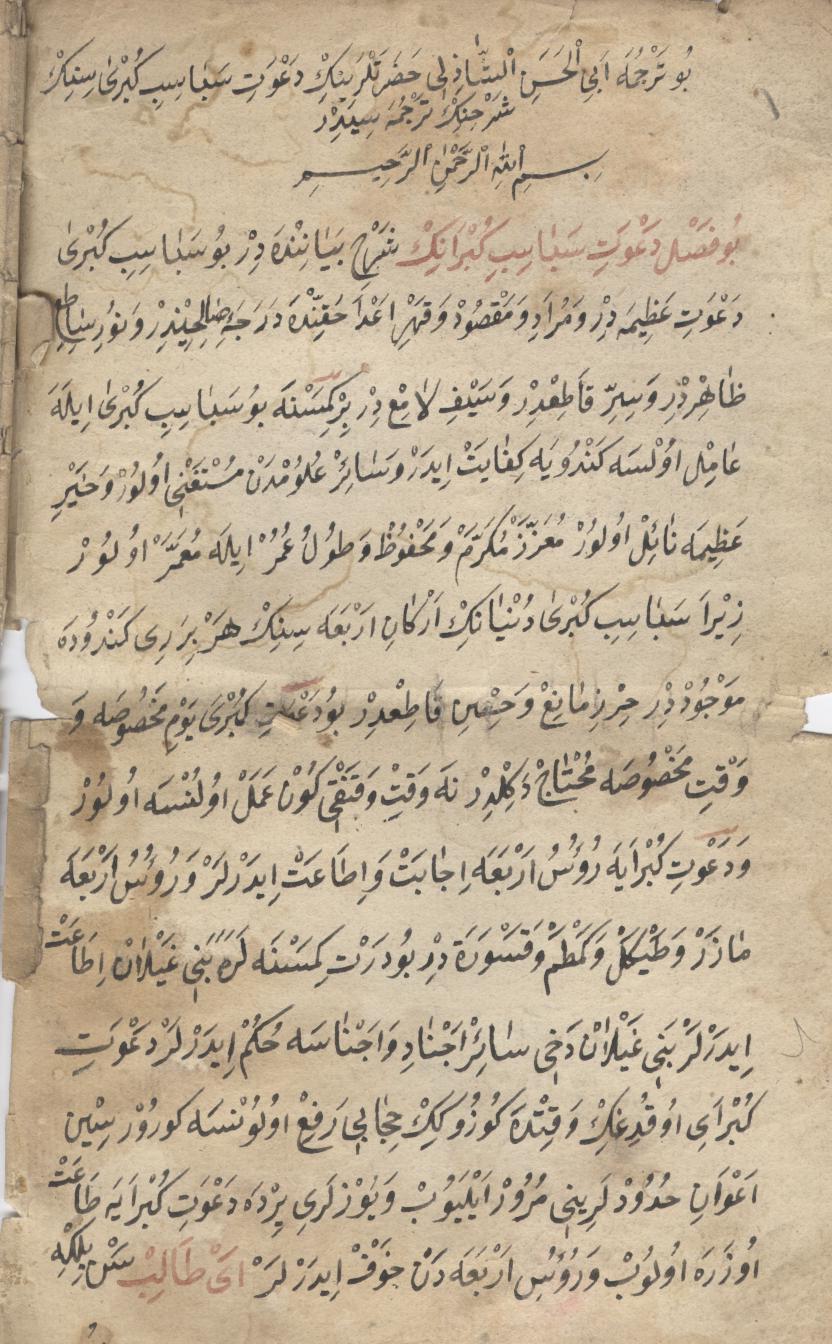 بُو تَرْجُمَهٔ اَبِي الْحَسَنِ الشَّاذِلِي حَضَرَتْلَرِينِكْ دَعْوَتِ سَبَاسِبِ كُبْرٰى سِنِكْ
شَرْحِنِكْ تَرْجُمَهٔ سِيدِرْ
بِسْمِ اللهِ الرَّحْمٰنِ الرَّحِيمِ
بُو فَصْل دَعْوَتِ سَبَاسِبِ كُبْرَانِكْ شَرْحِ بَيَانِنْدَهْ دِرْ بُو سَبَاسِبِ كُبْرٰى
دَعْوَتِ عَظِيمَه دِرْ وَمُرَادِ وَمَقْصُودْ وَقَهْرِ اَعْدَا حَقِنْدَهْ دَرَجَهٔ صَالِحِينْدِرْ وَنُورِ سَاطِعِ
ظَاهِرْدِرْ وَسِرِّ قَاطِعْدِرْ وَسَيْفِ لَامِعْ دِرْ بِرْ كِمَسْنَه بُو سَبَاسِبِ كُبْرٰى اِيلَهْ
عَامِلْ اُولْسَه كَنْدُويَه كِفَايَتْ اِيدَرْ وَسَائِرْ عُلُومْدَنْ مُسْتَغْنِي اُولُورْ وَخَيْرِ
عَظِيمَه نَائِلْ اُولُورْ مُعَزَّزْ مُكَرَّمْ وَمَحْفُوظْ وَطُولُ عُمُرْ اِيلَه مُعَمَّرْ اُولُورْ
زِيْرَا سَبَاسِبِ كُبْرٰى دُنْيَانِكْ اَرْكَانِ اَرْبَعَه سِنِكْ هَرْ بِرَرِى كَنْدُودَه
مَوْجُودْدِرْ حِرْزِ مَانِعْ وَحِصْنِ قَاطِعْدِرْ بُو دَعْوَتِ كُبْرٰى يَوْمِ مَخْصُوصَه وَ
وَقْتِ مَخْصُوصَه مُحْتَاجْ دَكِلْدِرْ نَه وَقِتْ وَقَنْغِى كُونْ عَمَلْ اُولُنْسَه اُولُورْ
وَدَعْوَتِ كُبْرَايَه رُؤُسُ اَرْبَعَه اِجَابَتْ وَاِطَاعَتْ اِيدَرْلَرْ وَرُؤُسُ اَرْبَعَه
مَازَرْ وَطَيْكَلْ وَكَمْطَمْ وَقَسْوَرَة دِرْ بُو دَرْتْ كِمَسْنَه لَرَه بَنِي غَيْلَانْ اِطَاعَتْ
اِيدَرْلَرْ بَنِي غَيْلَانْ دَخِى سَائِرْ اَجْنَادِ وَاَجْنَاسَه حُكُمْ اِيدَرْلَرْ دَعْوَتِ
كُبْرَاىِ اُوقُدِغِكْ وَقِتْدَه كُوزُوكِكْ حِجَابِي رَفِعْ اُولُوْنسَه كُورُورْسِيْن
اَعْوَانِ حُدُودْ لَرِينِي مُرُورْ اَيْلَيُوبْ وَيُوْزلَرِى يِرْدَه دَعْوَتِ كُبْرَايَه طَاعَتْ
اُوزَرَه اُولُوبْ وَرُؤُسِ اَرْبَعَه دَنْ خَوْفْ اِيدَرْلَرْ اَىْ طَالِبْ سَنْ بِلْكِه